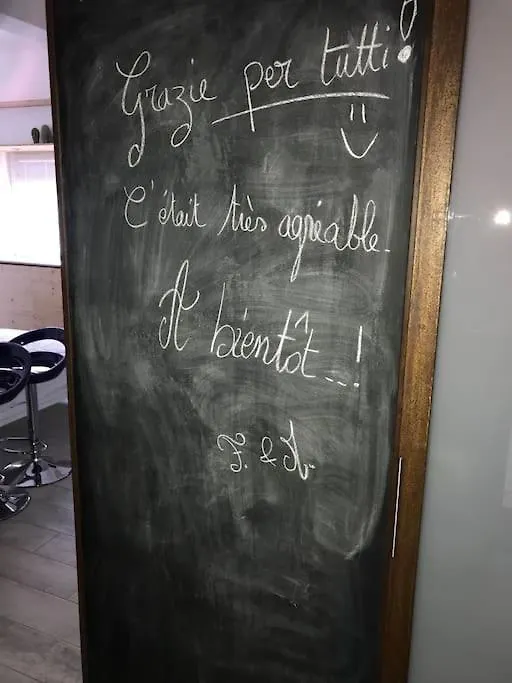 Grazie per tutti !
C'était très agréable.
A bientôt...!
F. & A.